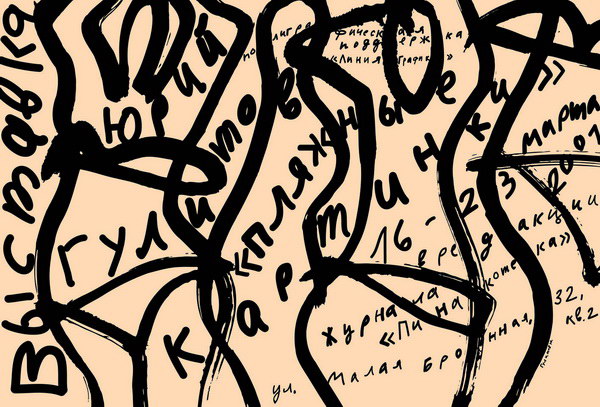 Выставка
Юрий
Гулитов
«Пляжные
картинки»
16-23 марта
2001
в редакции
журнала
«Пинакотека»
ул. Малая Бронная, 32,
кв. 2
полиграфическая
поддержка
«Линия График»